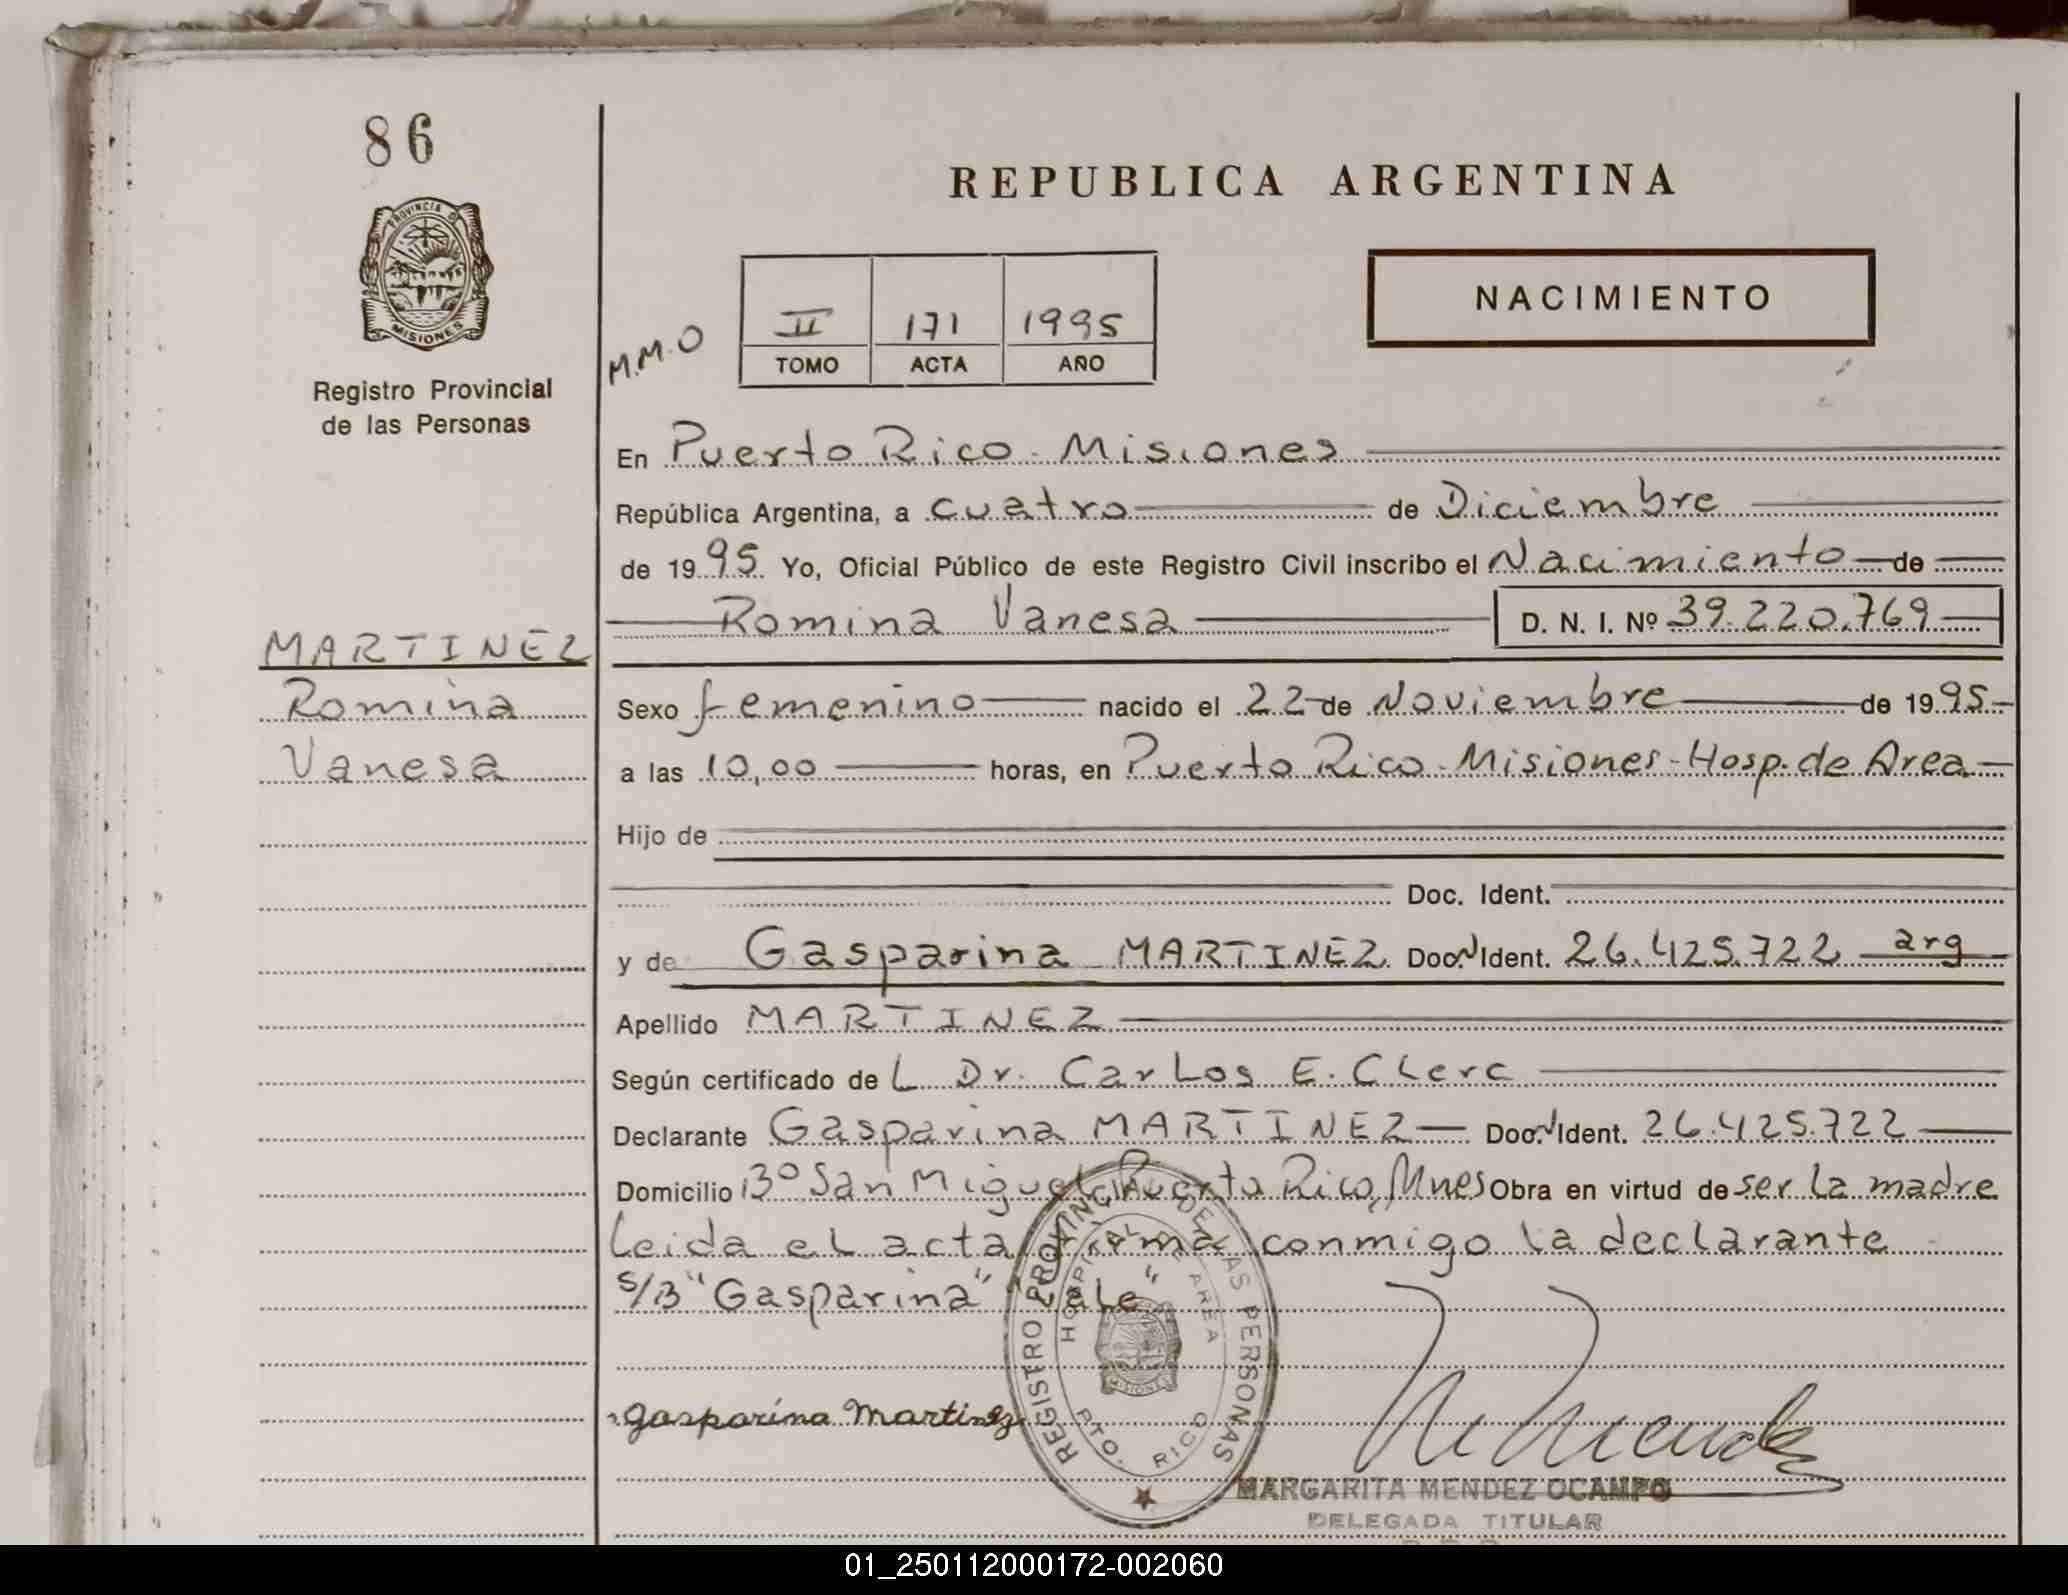 86
PROVINCIA DE
MISIONES
Registro Provincial
de las Personas
MARTINEZ
Romina
Vanesa
REPUBLICA ARGENTINA
NACIMIENTO
M.M.O
II 171 1995
TOMO ACTA AÑO
En Puerto Rico - Misiones
República Argentina, a cuatro de Diciembre
de 1995 Yo, Oficial Público de este Registro Civil inscribo el Nacimiento de
Romina Vanesa D. N. I. Nº 39.220.769
Sexo femenino nacido el 22 de Noviembre de 1995
a las 10,00 horas, en Puerto Rico - Misiones - Hosp. de Area
Hijo de
Doc. Ident.
y de Gasparina MARTINEZ Doc. N Ident. 26.425.722 arg
Apellido MARTINEZ
Según certificado de L Dr. Carlos E. Clerc
Declarante Gasparina MARTINEZ Doc. N Ident. 26.425.722
Domicilio Bº San Miguel Puerto Rico, Mnes Obra en virtud de ser la madre
Leida el acta firma conmigo la declarante
S/B "Gasparina" "Vale"
gasparina martinez
REGISTRO PROVINCIAL DE LAS PERSONAS
HOSPITAL DE AREA
MISIONES
PTO. RICO
MARGARITA MENDEZ OCAMPO
DELEGADA TITULAR
01_250112000172-002060